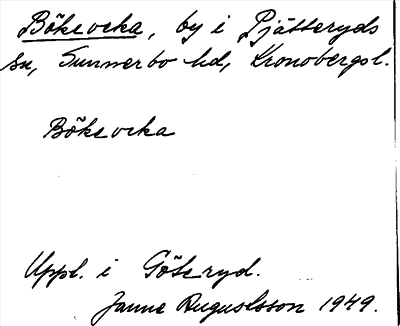 Bökevcka, by i Pjätteryds
sn, Sunnerbo hd, Kronobergs l.
Bökevcka
Uppl. i Göteryd.
Janne Augustsson 1949.